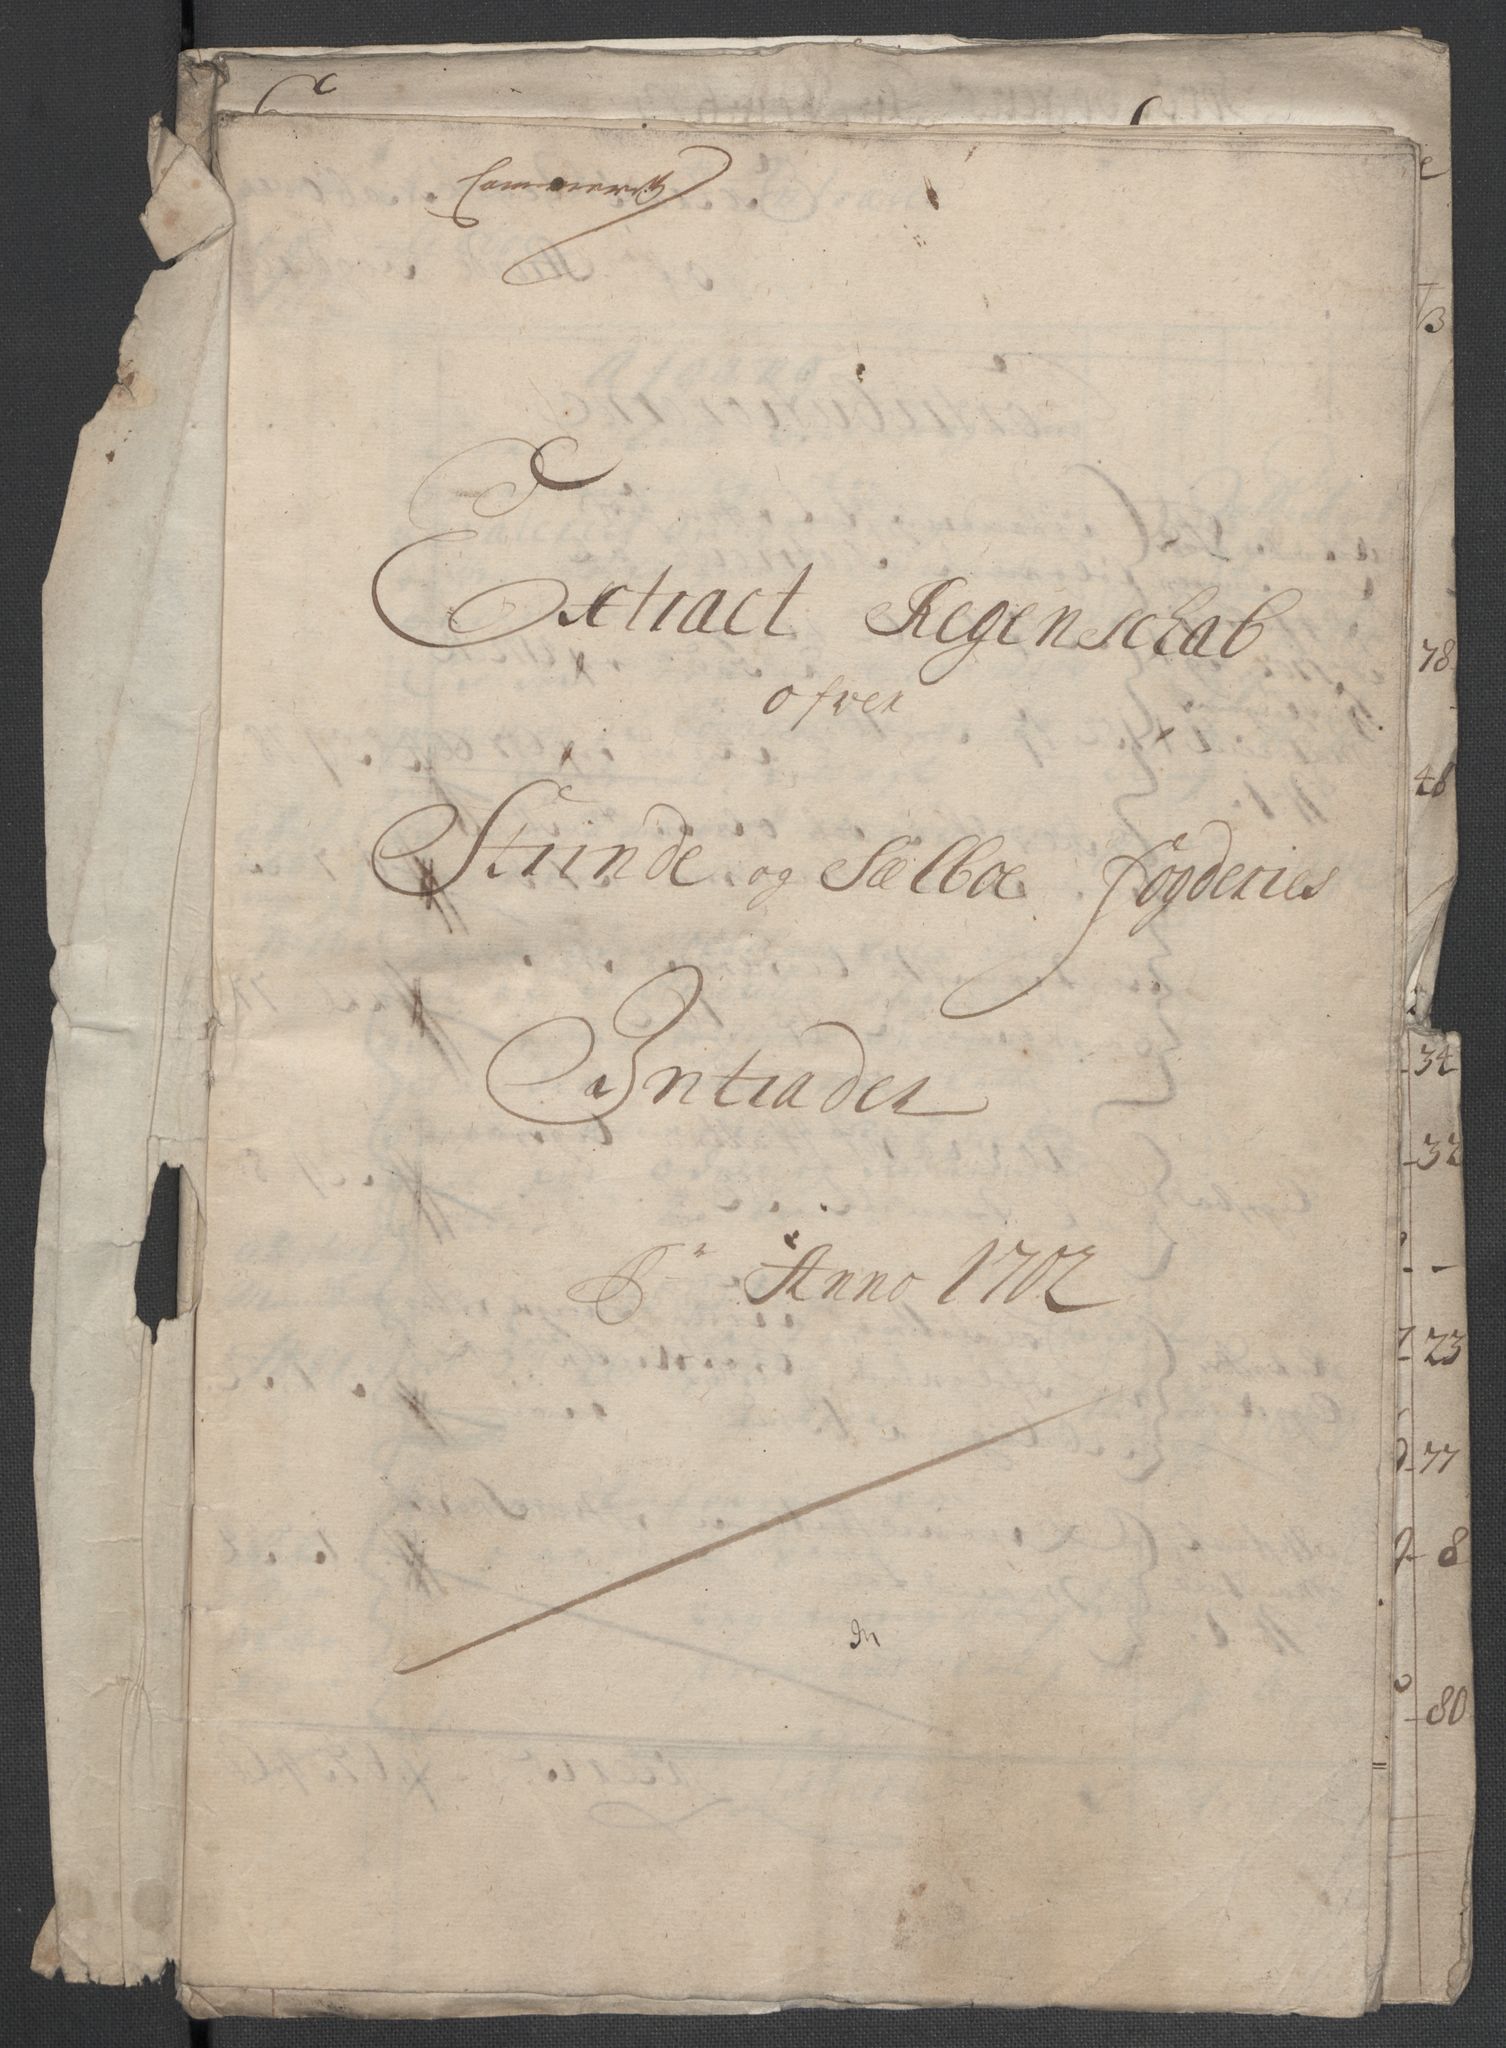 Extract Regenschab
ofver
Strinde og Sælboe fogderies
Intrader
Pr Anno 1702
78
48
34
32
23
77
8
80